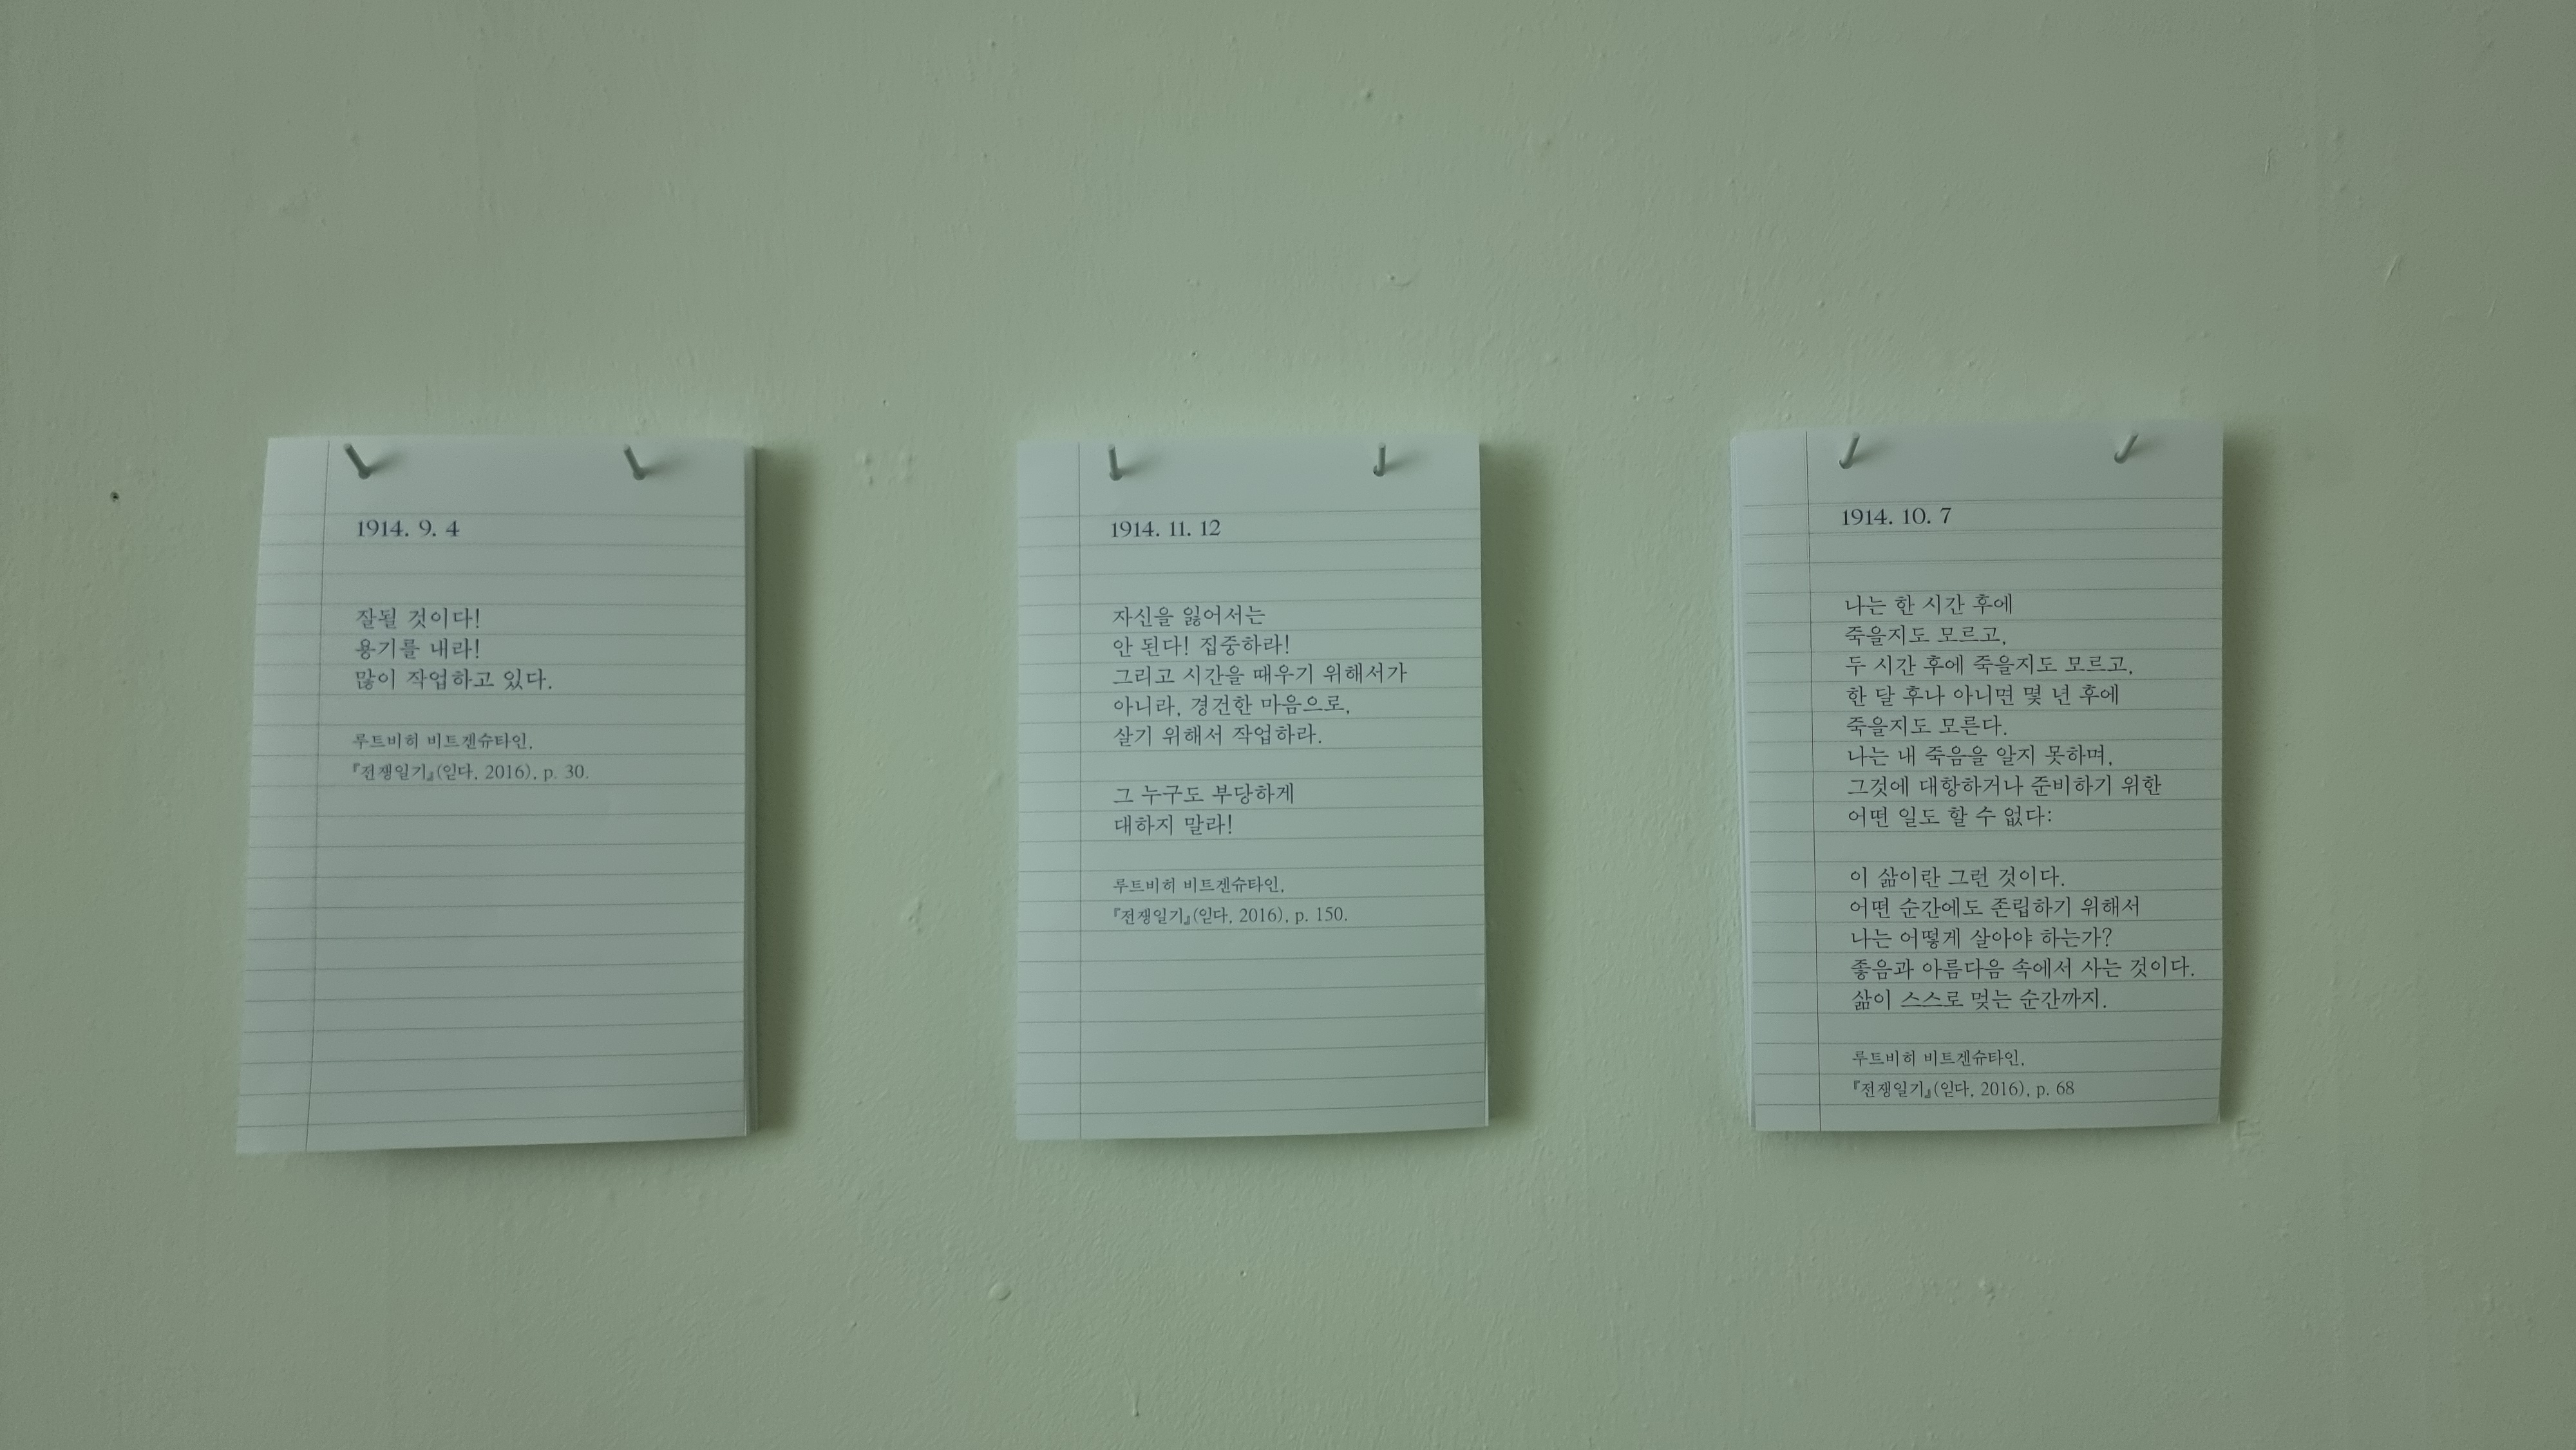 1914. 9. 4
잘될 것이다!
용기를 내라!
많이 작업하고 있다.
루트비히 비트겐슈타인,
『전쟁일기』(읻다, 2016), p. 30.
1914. 11. 12
자신을 잃어서는
안 된다! 집중하라!
그리고 시간을 때우기 위해서가
아니라, 경건한 마음으로,
살기 위해서 작업하라.
그 누구도 부당하게
대하지 말라!
루트비히 비트겐슈타인,
『전쟁일기』(읻다, 2016), p. 150.
1914. 10. 7
나는 한 시간 후에
죽을지도 모르고,
두 시간 후에 죽을지도 모르고,
한 달 후나 아니면 몇 년 후에
죽을지도 모른다.
나는 내 죽음을 알지 못하며,
그것에 대항하거나 준비하기 위한
어떤 일도 할 수 없다:
이 삶이란 그런 것이다.
어떤 순간에도 존립하기 위해서
나는 어떻게 살아야 하는가?
좋음과 아름다음 속에서 사는 것이다.
삶이 스스로 멎는 순간까지.
루트비히 비트겐슈타인,
『전쟁일기』(읻다, 2016), p. 68